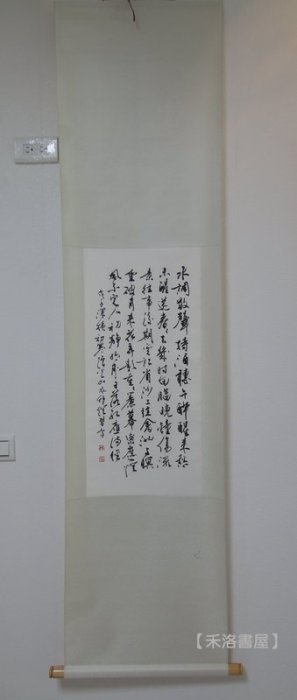 水調數聲持酒聽午醉醒來愁
未醒送春々去幾時回臨晚鏡傷流
景往事後期空記省沙上並禽池上暝
雲破月來花弄影重々簾幕密遮燈
風不定人初靜明日落紅應滿徑
戊子
【禾洛書屋】